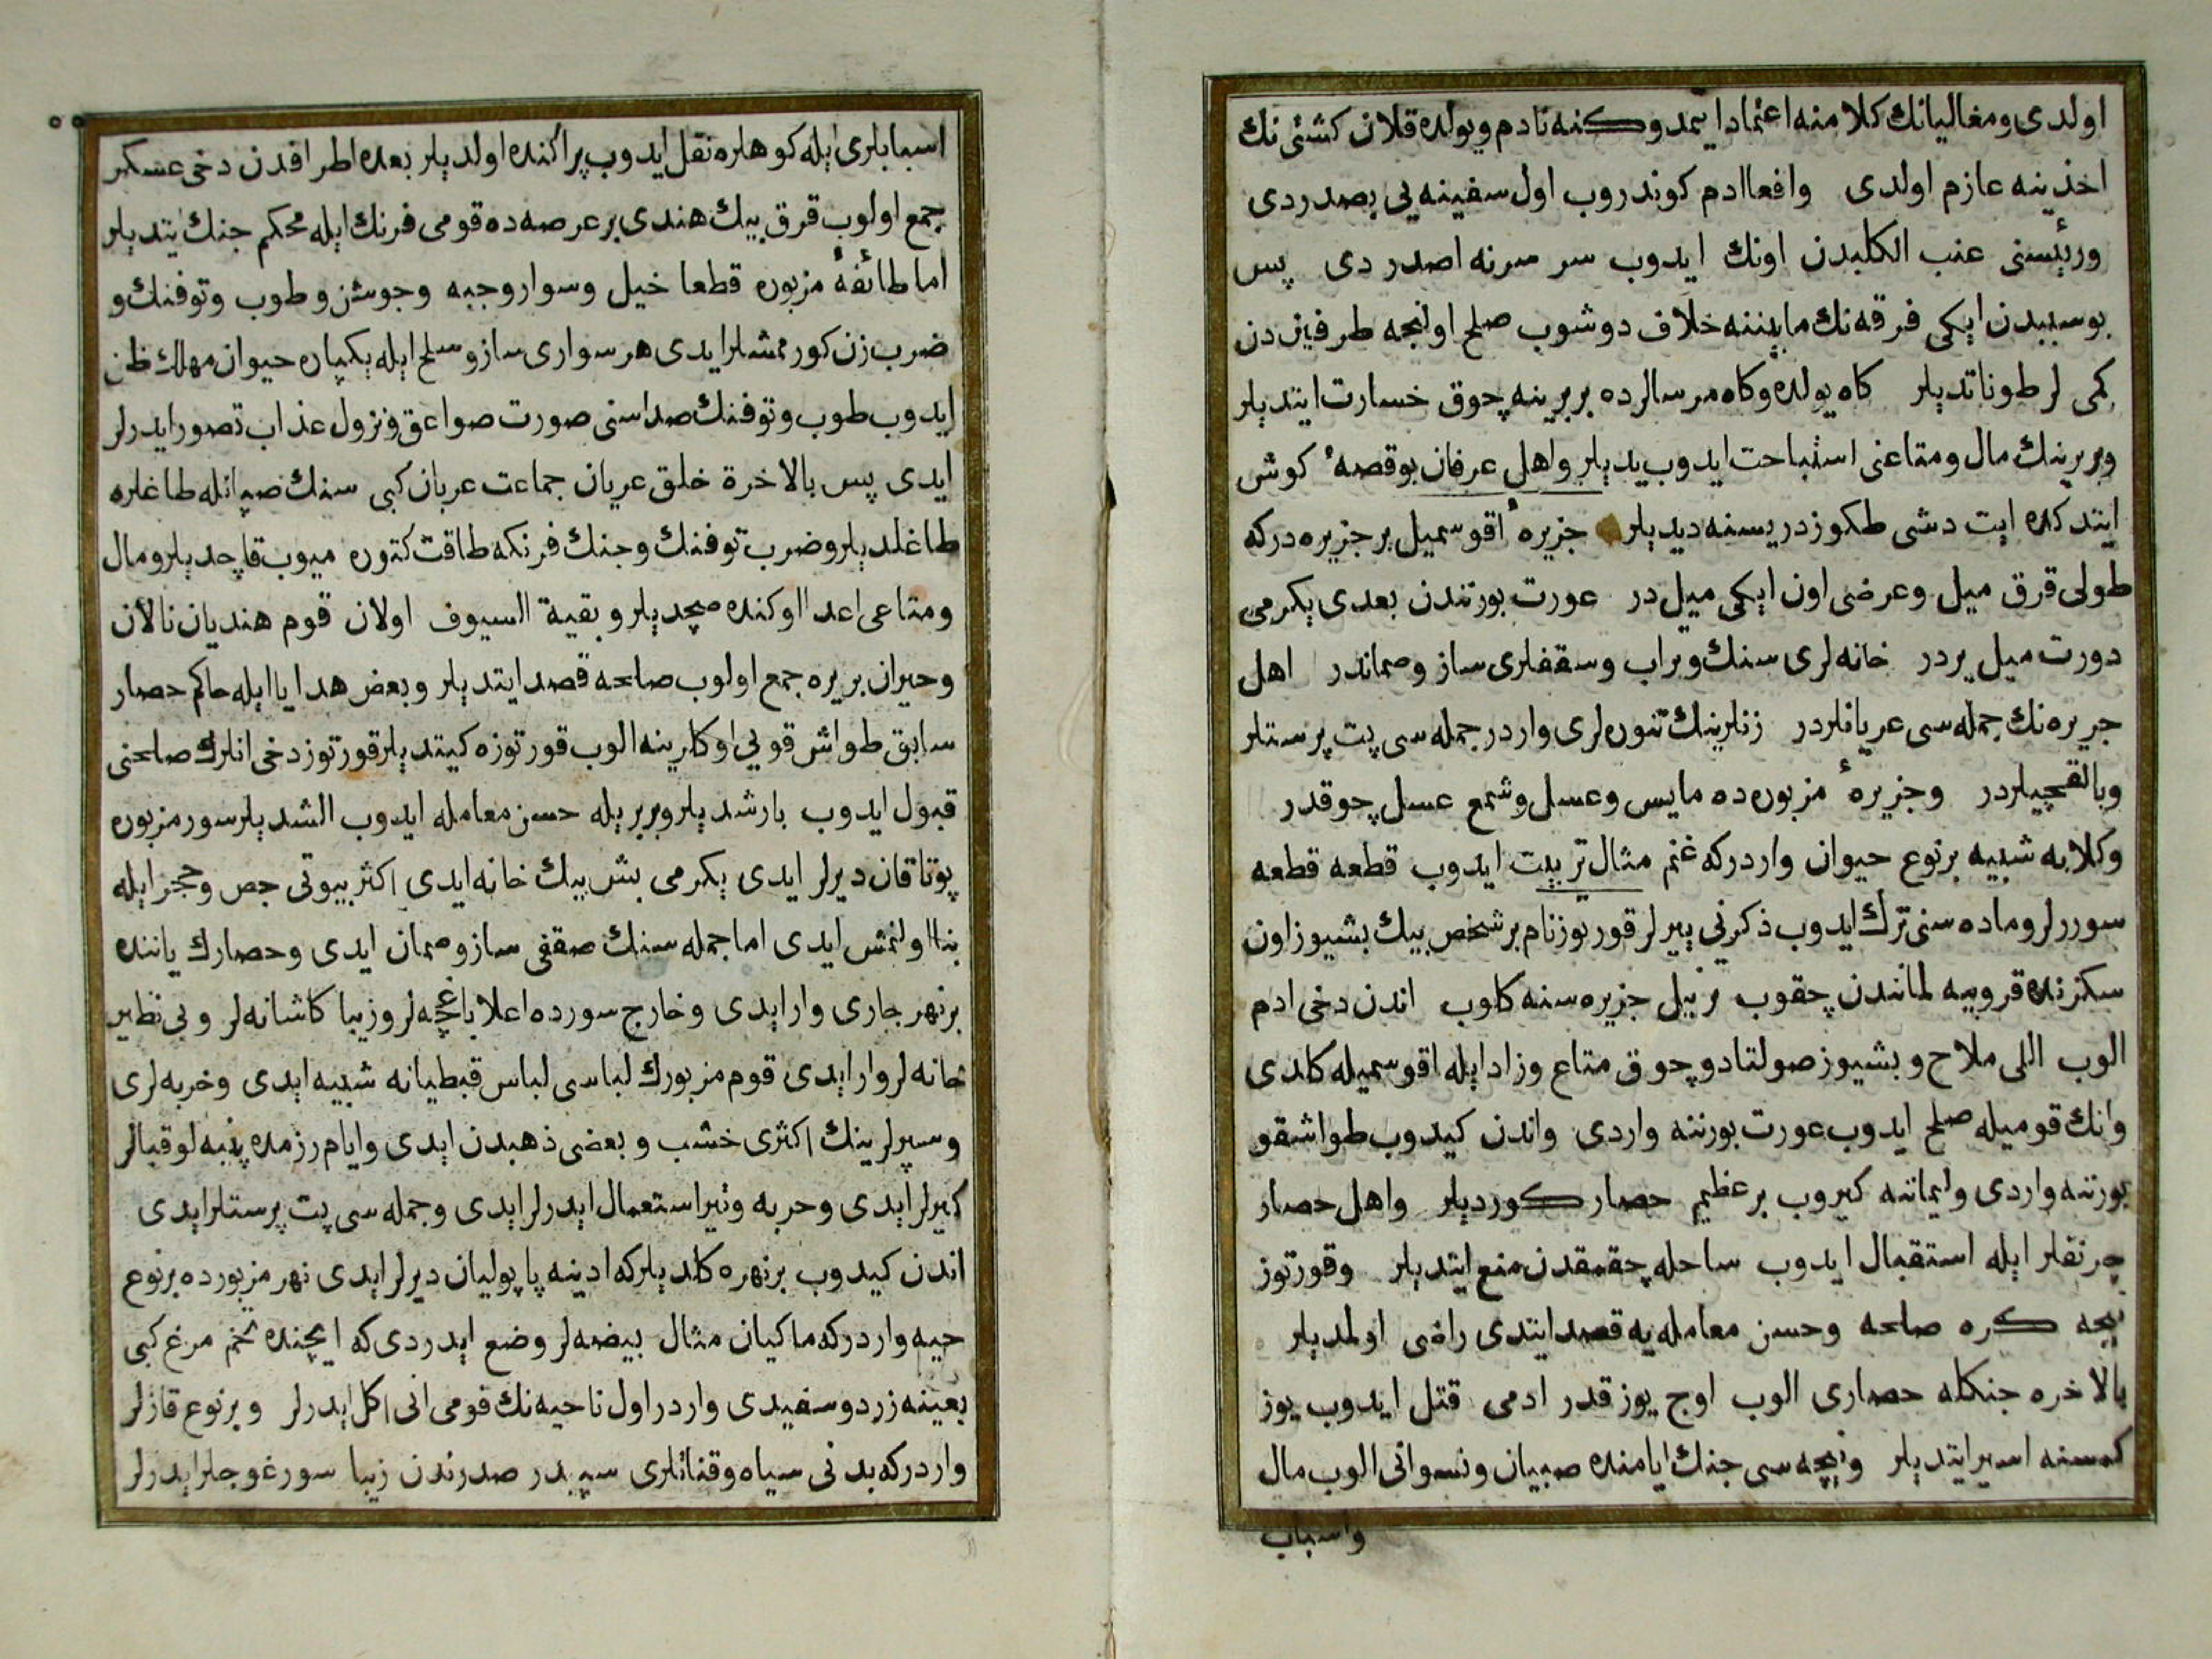 اولدی ومغالیانك كلامنه اعتماد ایتمدوكنه نادم ویولده قلان كشتی نك
اخذینه عازم اولدی وافعا ادم كوندروب اول سفینه یی بصدردی
ورئیسنی عنب الكلبدن اونك ایدوب سر سرنه اصدردی پس
بوسببدن ایكی فرقه نك مابیننه خلاف دوشوب صلح اولنجه طرفیندن
كمی لر طوناتدیلر كاه یولده وكاه مرسالرده بربرینه چوق خسارت ایتدیلر
وبربرینك مال ومتاعنی استباحت ایدوب یدیلر واهل عرفان بوقصهٔ كوش
ایتدكده ایت دشی طكوز دریسنه دیدیلر جزیرهٔ اقوسمیل بر جزیره دركه
طولی قرق میل وعرضی اون ایكی میل در عورت بورنندن بعدی یكرمی
دورت میل یردر خانه لری سنك وتراب وسقفلری ساز وصماندر اهل
جریره نك جمله سی عریانلردر زنلرینك تنوره لری واردر جمله سی پت پرستلر
وبالقچیلردر وجزیرهٔ مزبوره ده مایس وعسل وشمع عسل چوقدر
وكلابه شبیه برنوع حیوان واردركه غنم مثال تربیت ایدوب قطعه قطعه
سوررلر وماده سنی ترك ایدوب ذكرنی ییرلر قورتوز نام بر شخص بیك بشیوز اون
سكزنده قروبیه لمانندن چقوب نربیل جزیره سنه كلوب اندن دخی ادم
الوب اللی ملاح وبشیوز صولتادو چوق متاع وزاد ایله اقوسمیله كلدی
وانك قومیله صلح ایدوب عورت بورننه واردی واندن كیدوب طواشقو
بورتنه واردی ولیماننه كیروب بر عظیم حصار كوردیلر واهل حصار
چرنقلر ایله استقبال ایدوب ساحله چقمقدن منع ایتدیلر وقورتوز
نیجه كره صلحه وحسن معامله یه قصد ایتدی راضی اولمدیلر
بالاخره جنكله حصاری الوب اوچ یوز قدر ادمی قتل ایدوب یوز
كمسنه اسیر ایتدیلر ونیچه سی جنك ایامنده صبیان ونسوانی الوب مال
واسباب
اسبابلری ایله كوهلره نقل ایدوب پراكنده اولدیلر بعده اطرافدن دخی عسكر
جمع اولوب قرق بیك هندی بر عرصه ده قومی فرنك ایله محكم جنك ایتدیلر
اما طائفهٔ مزبوره قطعا خیل وسوار وجبه وجوشن وطوب وتوفنك و
ضرب زن كورممشلر ایدی هر سواری ساز وسلح ایله یكپاره حیوان مهلك ظن
ایدوب طوب وتوفنك صداسنی صورت صواعق ونزول عذاب تصور ایدرلر
ایدی پس بالاخرة خلق عریان جماعت عربان كبی سنك صپانله طاغلره
طاغلدیلر وضرب توفنك وجنك فرنكه طاقت كتوره میوب قاچدیلر ومال
ومتاعی اعدا اوكنده صچدیلر وبقیة السیوف اولان قوم هندیان نالان
وحیران بریره جمع اولوب صلحه قصد ایتدیلر وبعض هدایا ایله حاكم حصار
سابق طواش قویی اوكلرینه الوب قورتوزه كیتدیلر قورتوز دخی انلرك صلحنی
قبول ایدوب بارشدیلر وبربریله حسن معامله ایدوب الشدیلر سور مزبوره
پوتاقان دیرلر ایدی یكرمی بش بیك خانه ایدی اكثر بیوتی جص وحجر ایله
بنا اولنمش ایدی اما جمله سنك صقفی ساز وصمان ایدی وحصارك یاننده
بر نهر جاری وار ایدی وخارج سورده اعلا باغچه لر وزیبا كاشانه لر وبی نظیر
خانه لر وار ایدی قوم مزبورك لباسی لباس قبطیانه شبیه ایدی وحربه لری
وسپرلرینك اكثری خشب وبعضی ذهبدن ایدی وایام رزمده پنبه لو قبالر
كیرلر ایدی وحربه وتیر استعمال ایدرلر ایدی وجمله سی پت پرستلر ایدی
اندن كیدوب بر نهره كلدیلركه ادینه پاپولیان دیرلر ایدی نهر مزبورده برنوع
حیه واردركه ماكیان مثال بیضه لر وضع ایدردی كه ایچنده تخم مرغ كبی
بعینه زرد وسفیدی واردر اول ناحیه نك قومی انی اكل ایدرلر وبرنوع قازلر
واردركه بدنی سیاه وقناتلری سپیدر صدرندن زیبا سورغوجلر ایدرلر